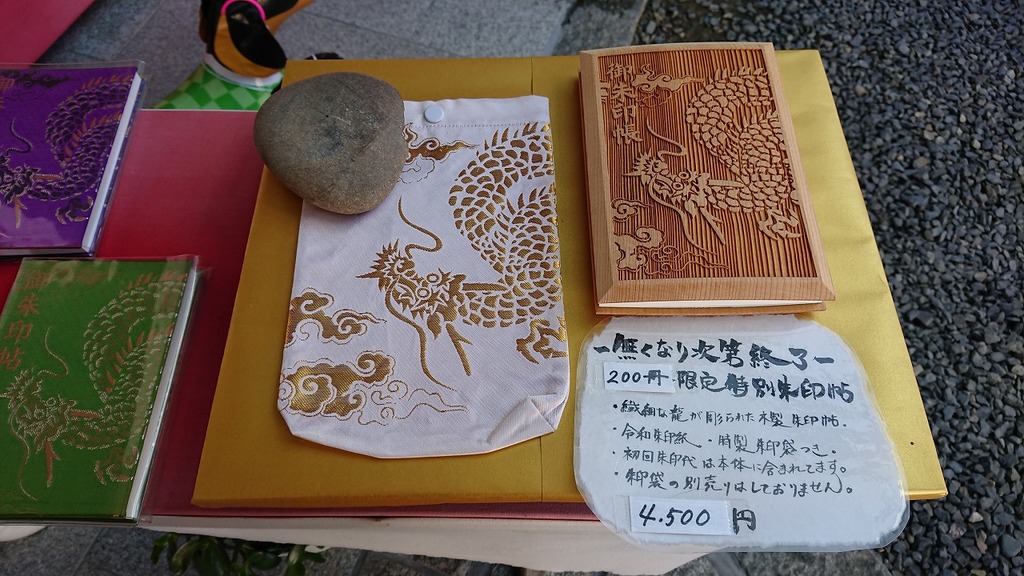 御朱印帳
御朱印帖
ー無くなり次第終了ー
200冊限定 特別朱印帖
・繊細な龍が彫られた木製朱印帖.
・令和朱印紙・特製朱印袋つき.
・初回朱印代は本体に含まれてます。
・朱印袋の別売りはしておりません。
4.500円